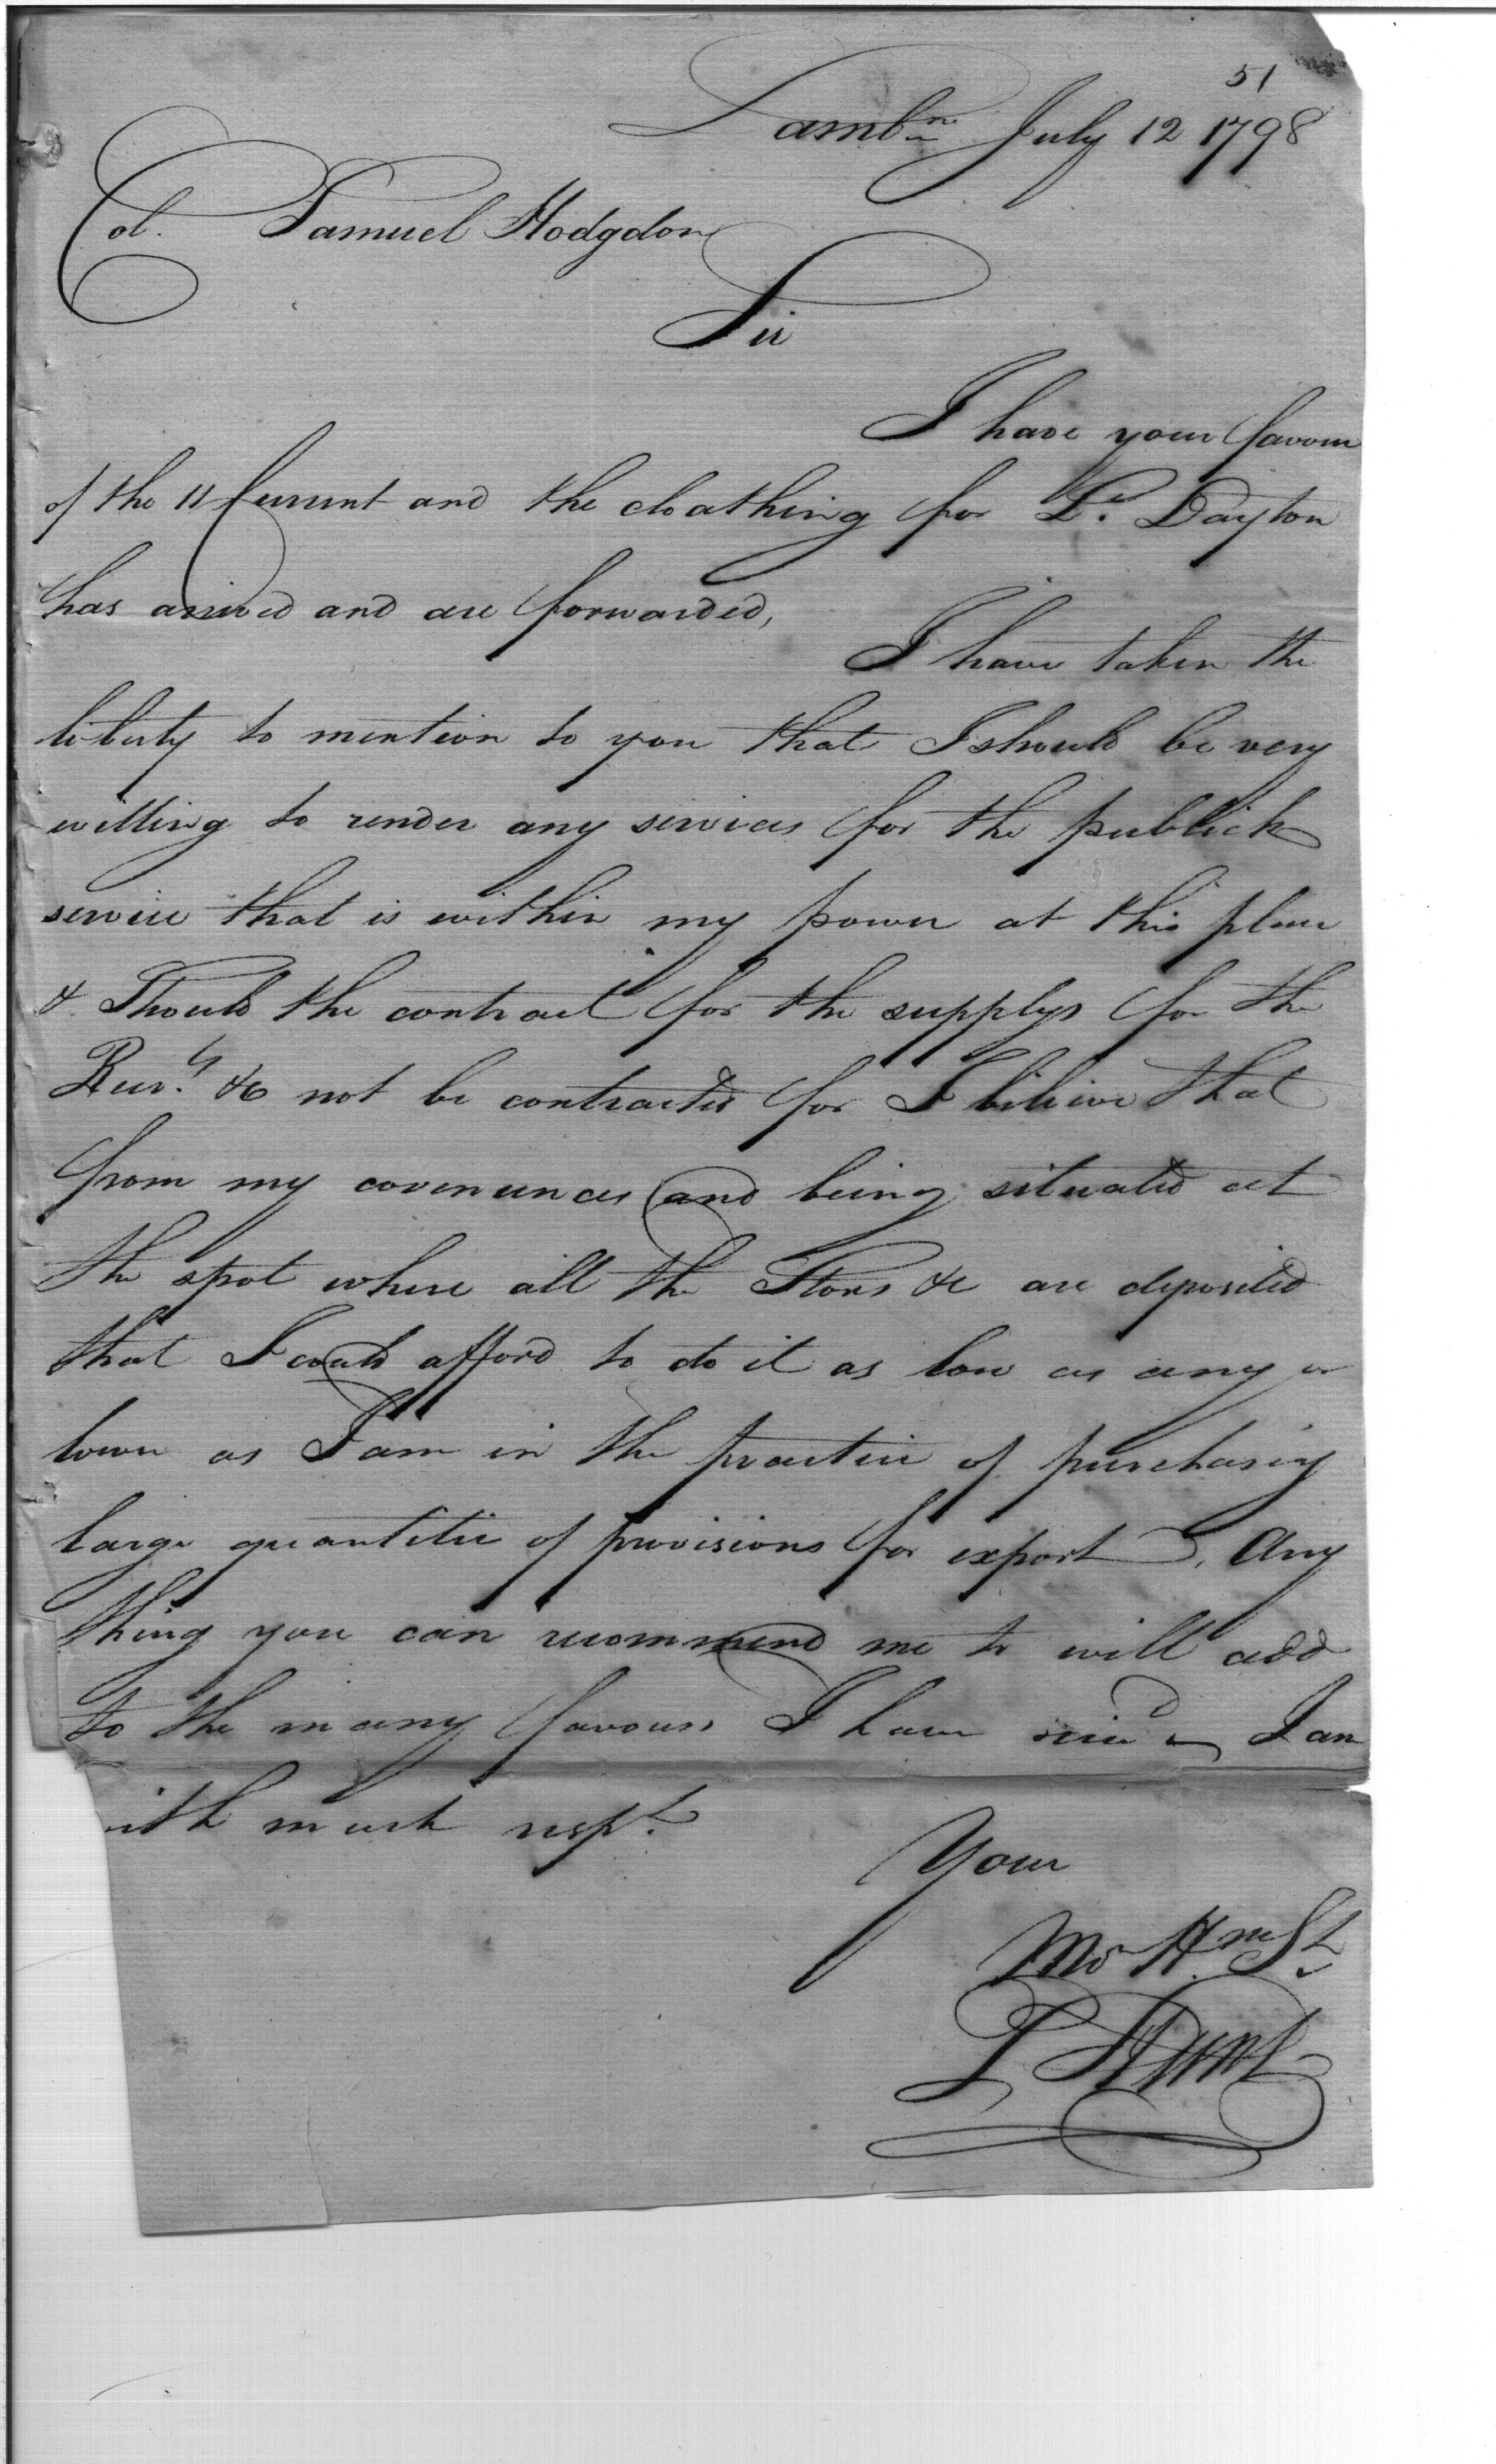 51
Lambn July 12 1798
Col. Samuel Hodgdon
Sir
I have your favour
of the 11 Currunt and the cloathing for Lt. Dayton
has arrived and are forwarded,
I have taken the
liberty to mention to you that I should be very
willing to render any services for the publick
service that is within my power at this place
& Should the contract for the supplys for the
&c not be contracted for I beleive that
from my covenunces and being situated at
the spot where all the Stors &c are deposited
that I could afford to do it as low as any or
lower as I am in the practice of purchasing
large quantitie of provisions for export. Any
thing you can recommend me to will add
to the many favours I have recied I am
with much respt.
Your
Mo Hm St
L Hunt